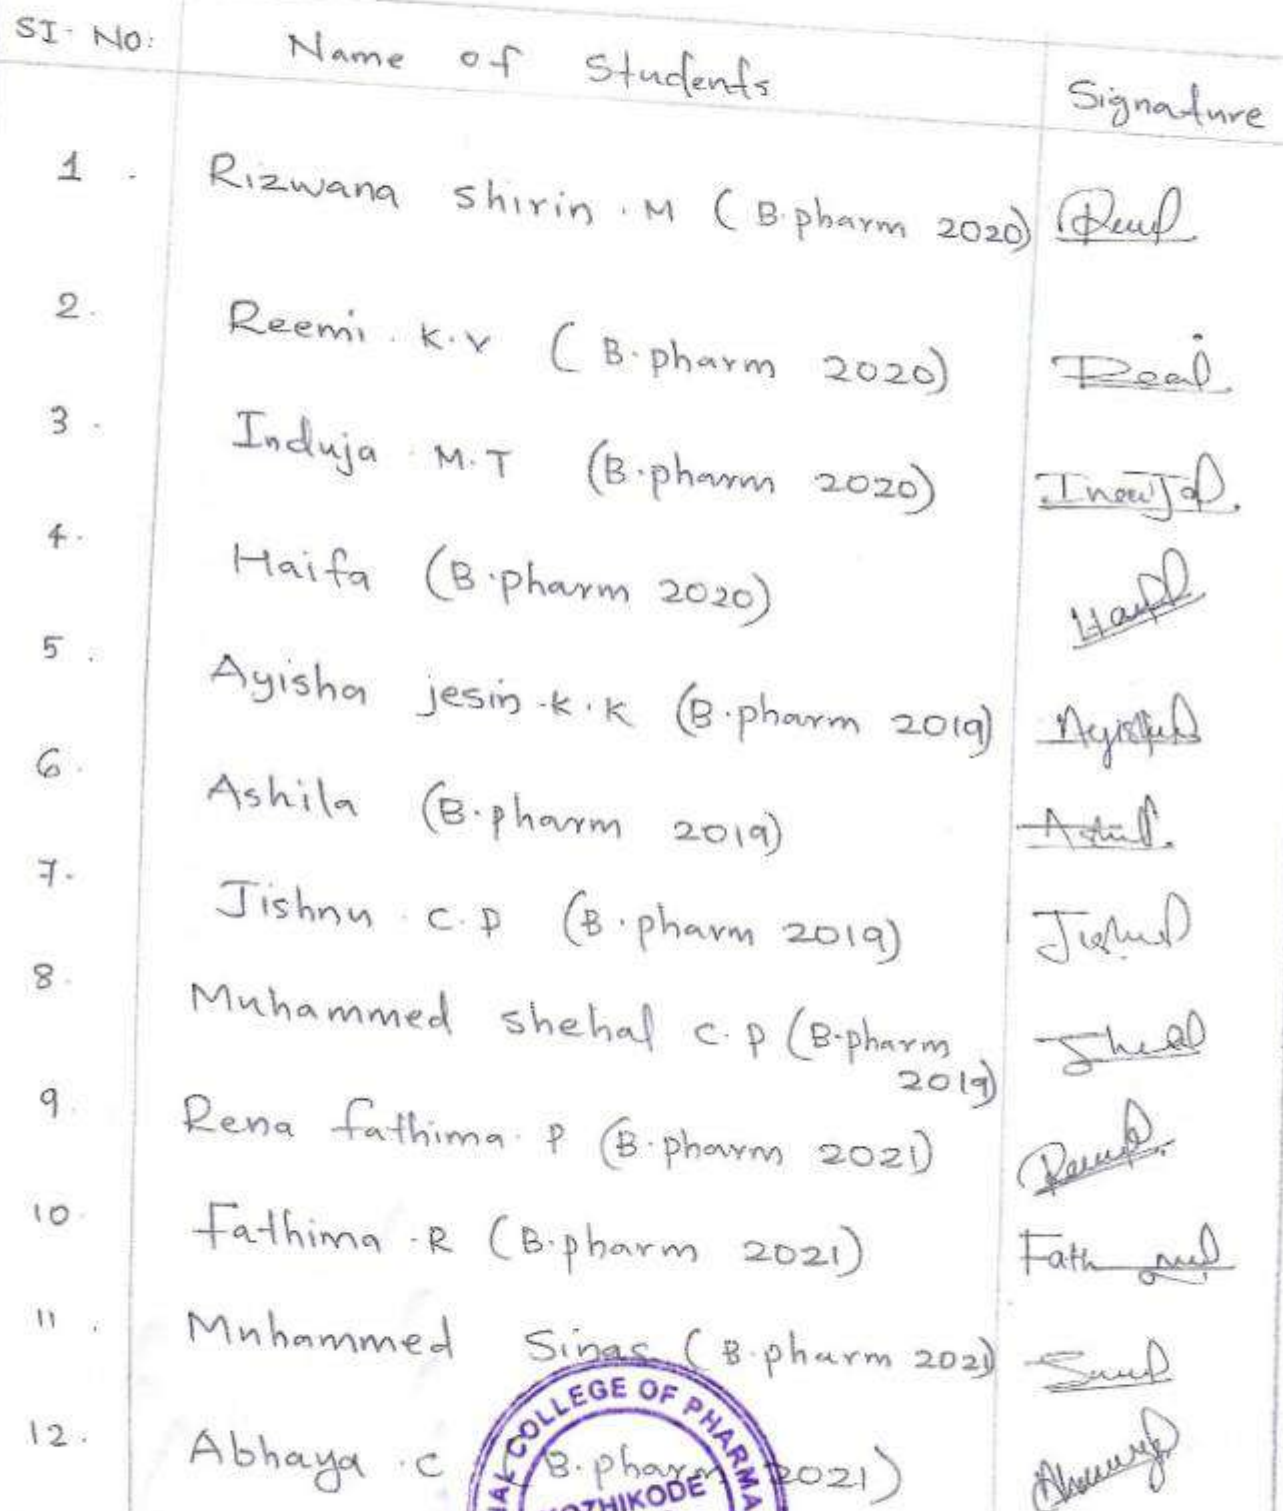 SI. NO: Name of Students Signature
1. Rizwana Shirin . M ( B.pharm 2020)
2. Reemi . K.V ( B.pharm 2020)
3. Induja M.T (B.pharm 2020)
4. Haifa (B.pharm 2020)
5. Ayisha jesin .K.K (B.pharm 2019)
6. Ashila (B.pharm 2019)
7. Jishnu . C.P (B.pharm 2019)
8. Muhammed shehal C.P (B.pharm
2019)
9. Rena fathima . P (B.pharm 2021)
10. Fathima .R (B.pharm 2021) Fath
11. Muhammed Sinas (B.pharm 2021)
12. Abhaya .C (B.pharm 2021)
COLLEGE OF PHARMA
KODE